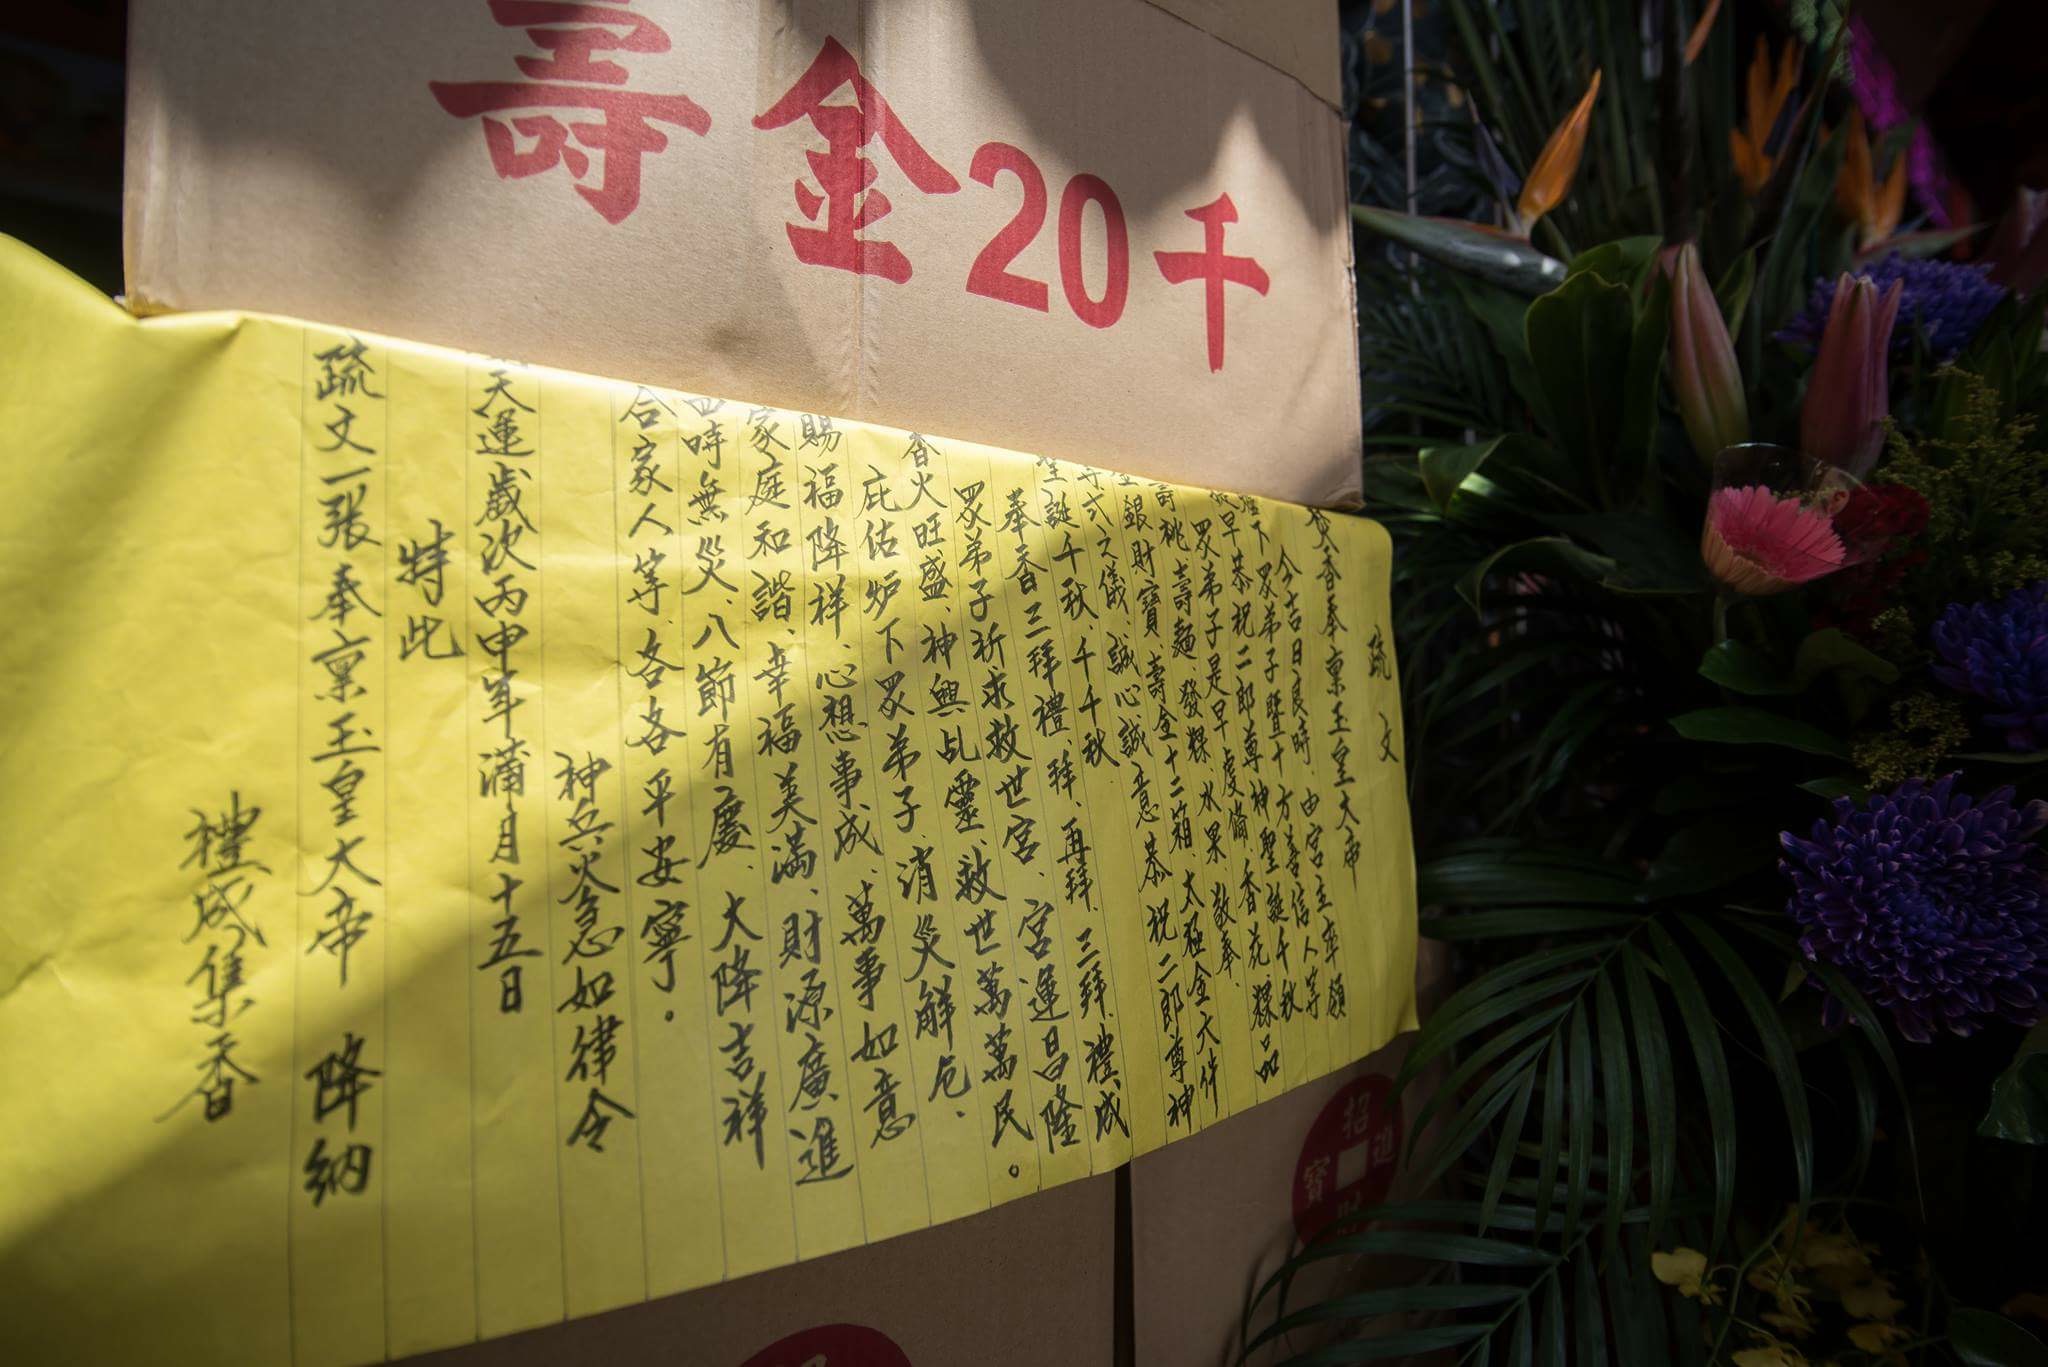 壽金20千
疏文
香奉稟玉皇大帝
今吉日良時、由宮主率領
下眾弟子暨十方善信人等
早恭祝二郎尊神聖誕千秋
眾弟子是早虔備、香花、粿品
壽桃、壽麵、發粿、水果、敬奉、
銀財寶、壽金十二箱、太極金大件
式之儀、誠心誠意恭祝二郎尊神
聖誕千秋、千千秋
奉香三拜禮、拜、再拜、三拜、禮成
眾弟子祈求救世宮、宮運昌隆
香火旺盛、神興乩靈、救世萬萬民。
庇佑爐下眾弟子、消災解厄、
賜福降祥、心想事成、萬事如意
家庭和諧、幸福美滿、財源廣進
四時無災、八節有慶、大降吉祥
合家人等、各各平安寧。
神兵火急如律令
天運歲次丙申年蒲月十五日
特此
疏文一張奉稟玉皇大帝 降納
禮成集香
招
進
寶